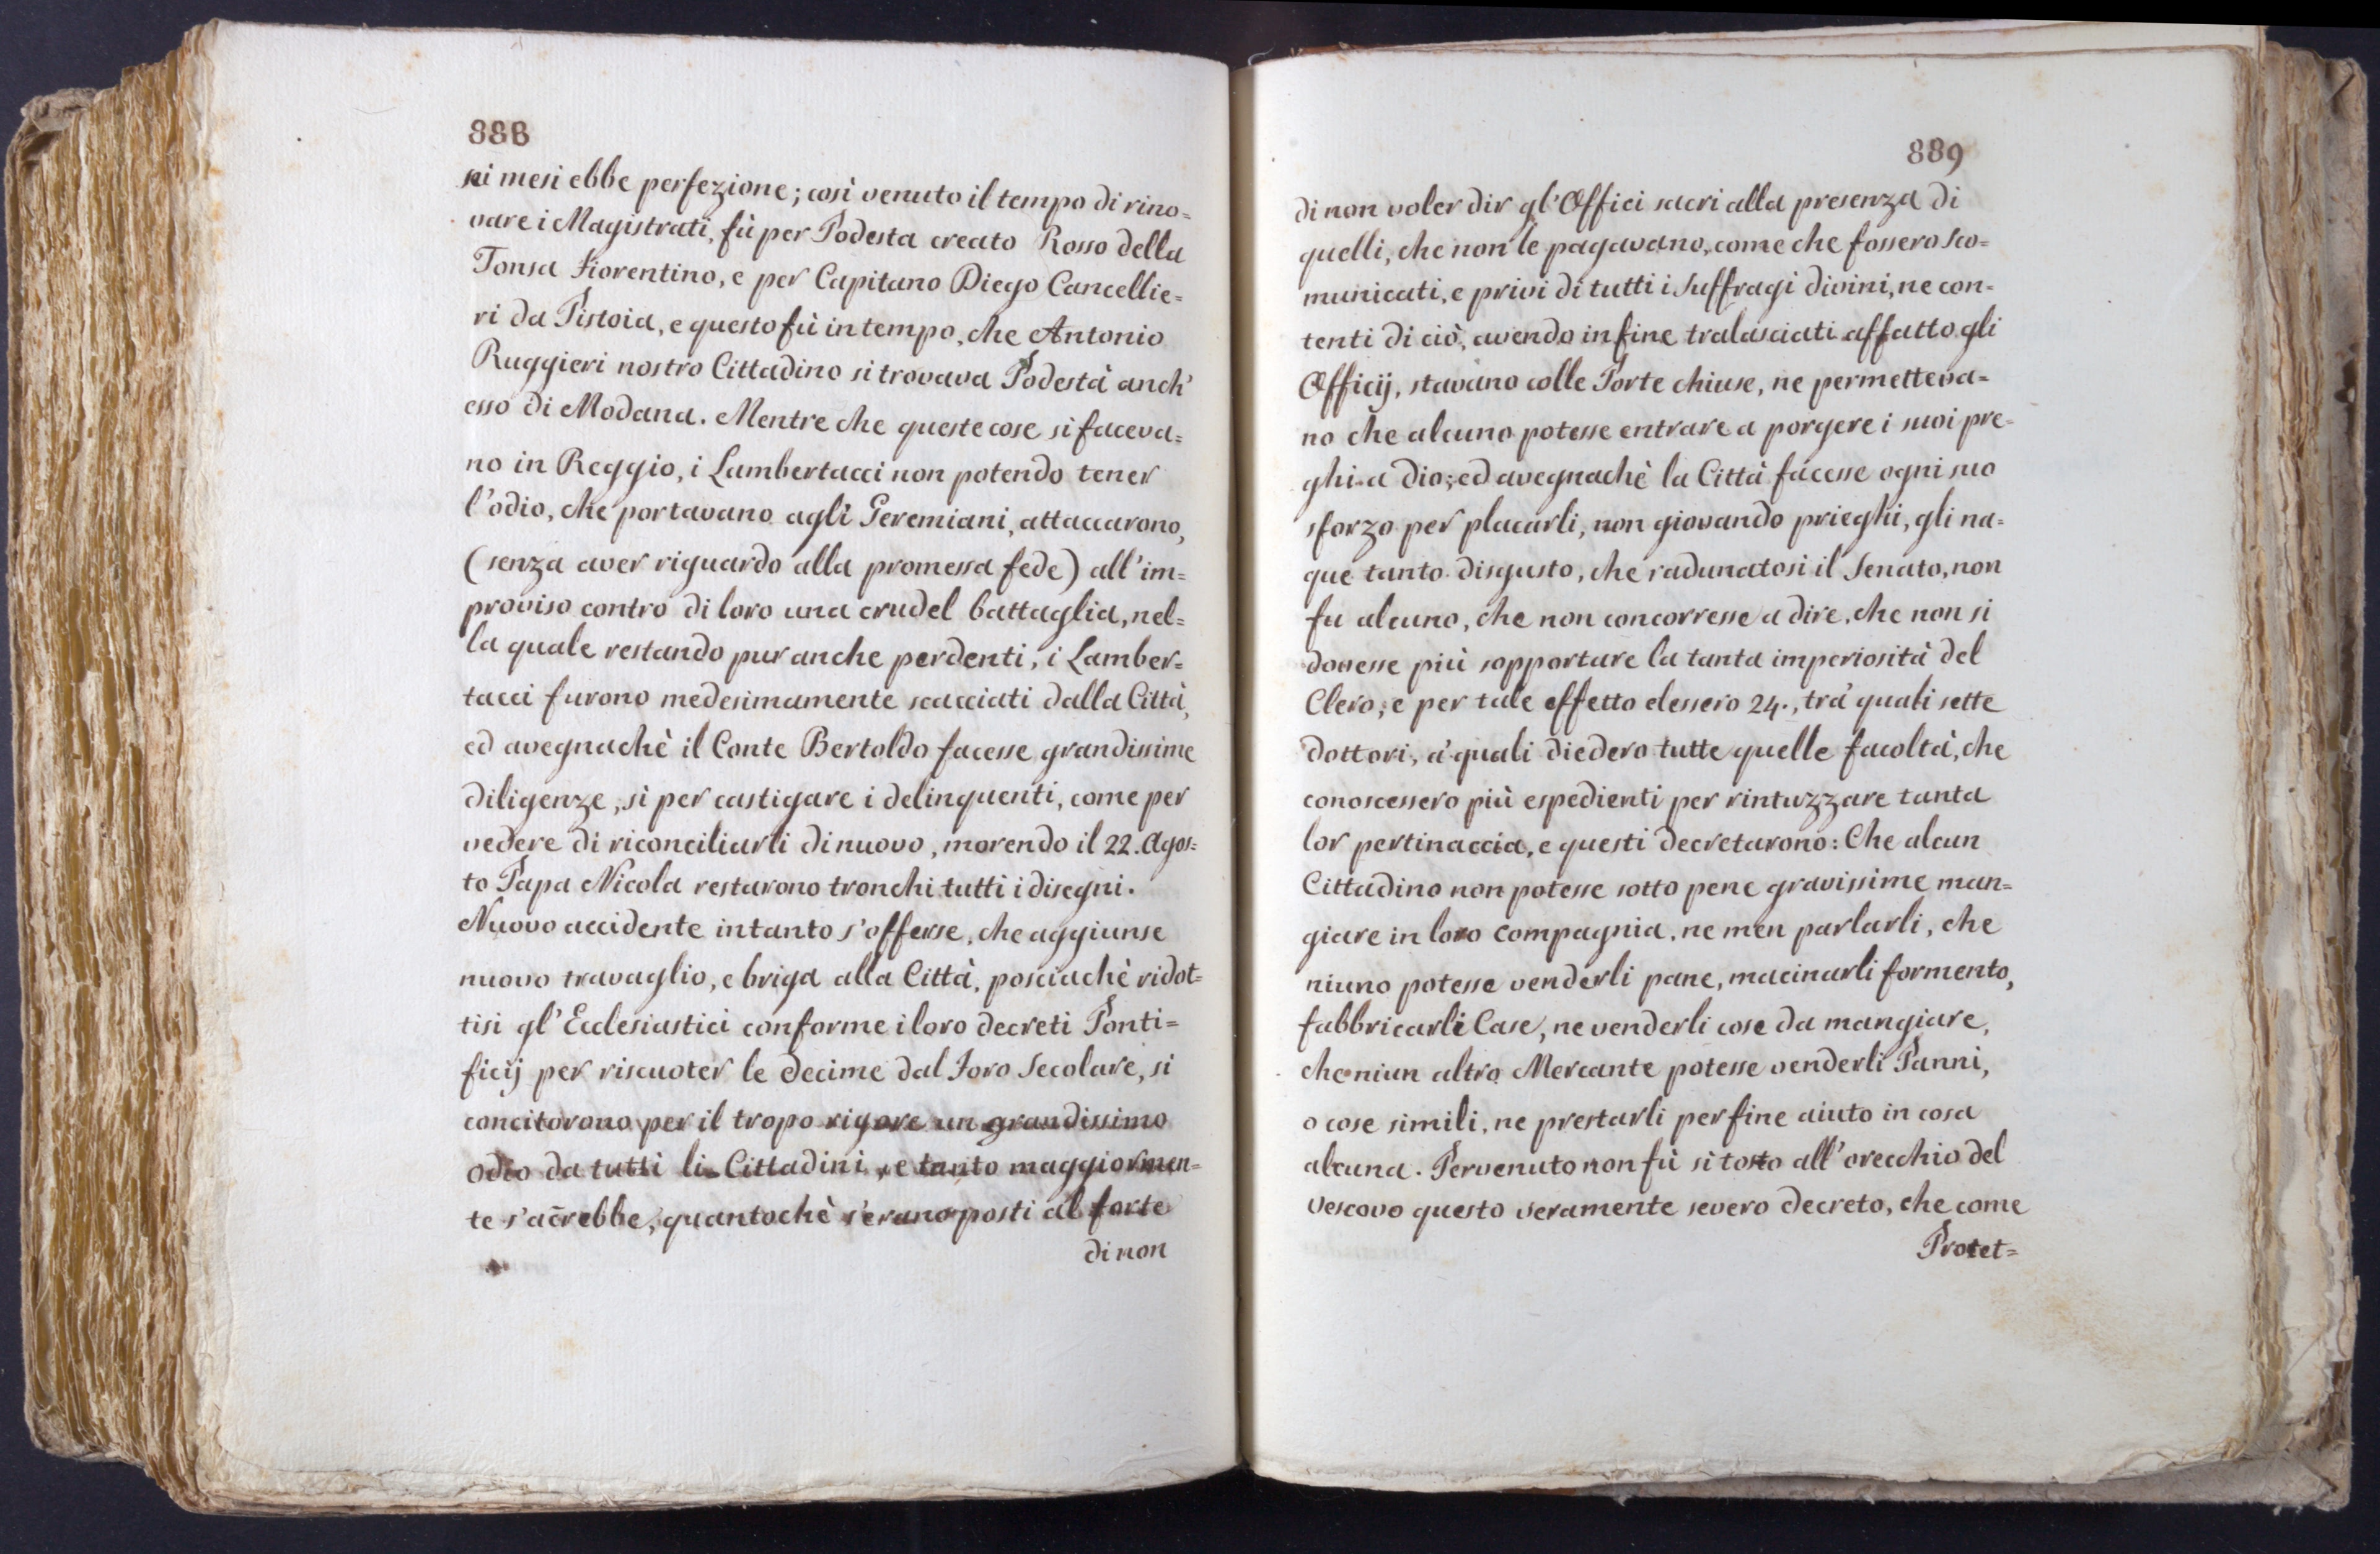 888
sei mesi ebbe perfezione; così venuto il tempo di rino=
vare i Magistrati, fù per Podesta creato Rosso della
Tonsa Fiorentino, e per Capitano Diego Cancellie=
ri da Pistoia, e questo fù in tempo, che Antonio
Ruggieri nostro Cittadino si trovava Podestà anch'
esso di Modana. Mentre che queste cose si faceva=
no in Reggio, i Lambertacci non potendo tener
l'odio, che portavano agli Geremiani, attaccarono,
(senza aver riguardo alla promessa fede) all'im=
proviso contro di loro una crudel battaglia, nel=
la quale restando pur anche perdenti, i Lamber=
tacci furono medesimamente scacciati dalla Città,
ed avegnachè il Conte Bertoldo facesse grandissime
diligenze, sì per castigare i delinquenti, come per
vedere di riconciliarli di nuovo, morendo il 22. Agos=
to Papa Nicola restarono tronchi tutti i disegni.
Nuovo accidente intanto s'offerse, che aggiunse
nuovo travaglio, e briga alla Città, posciachè ridot=
tisi gl'Ecclesiastici conforme i loro decreti Ponti=
ficij per riscuoter le decime dal Foro Secolare, si
concitorono per il tropo rigore un grandissimo
odio da tutti li Cittadini, e tanto maggiormen=
te s'acrebbe, quantochè s'erano posti al forte
di non
889
di non voler dir gl'Offici sacri alla presenza di
quelli, che non le pagavano, come che fossero sco=
municati, e privi di tutti i suffragi divini, ne con=
tenti di ciò, avendo in fine tralasciati affatto gli
Officij, stavano colle Porte chiuse, ne permetteva=
no che alcuno potesse entrare a porgere i suoi pre=
ghi a dio; ed avegnachè la Città facesse ogni suo
sforzo per placarli, non giovando prieghi, gli na=
que tanto disgusto, che radunatosi il Senato, non
fu alcuno, che non concorresse a dire, che non si
dovesse più sopportare la tanta imperiosità del
Clero; e per tale effetto elessero 24., trà quali sette
dottori, à quali diedero tutte quelle facoltà, che
conoscessero più espedienti per rintuzzare tanta
lor pertinaccia, e questi decretarono: Che alcun
Cittadino non potesse sotto pene gravissime man=
giare in loro compagnia, ne men parlarli, che
niuno potesse venderli pane, macinarli formento,
fabbricarli Case, ne venderli cose da mangiare,
che niun altro Mercante potesse venderli Panni,
o cose simili, ne prestarli perfine aiuto in cosa
alcuna. Pervenuto non fù si tosto all'orecchio del
Vescovo questo veramente severo decreto, che come
Protet=